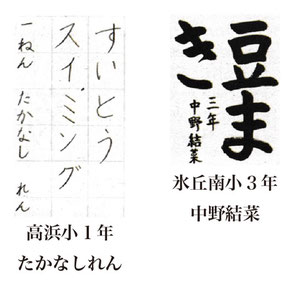 すいとう
スイミング
一ねん たかなし れん
高浜小1年
たかなしれん
豆ま
き
三年
中野結菜
氷丘南小3年
中野結菜